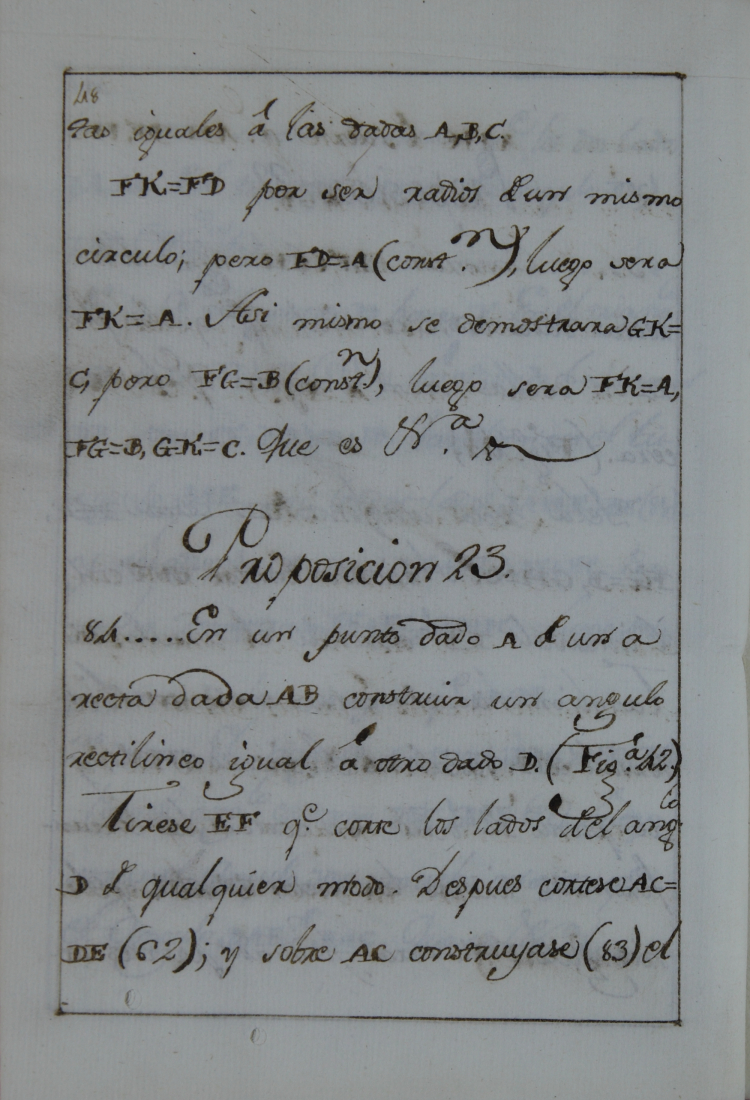 48
tas iguales á las dadas A,B,C.
FK=FD por ser radios d un mismo
circulo; pero FD=A (const.ⁿ), luego sera
FK=A. Asi mismo se demostrara GK=
C, pero FG=B (const.ⁿ), luego sera FK=A,
FG=B, GK=C. Que es
Proposicion 23.
84.....En un punto dado A d una
recta dada AB construir un angulo
rectilineo igual á otro dado D. (Fig.ª 42.)
Tirese EF q.e corte los lados del ang.lo
D d qualquier modo. Despues cortese AC=
DE (62); y sobre AC construyase (83) el